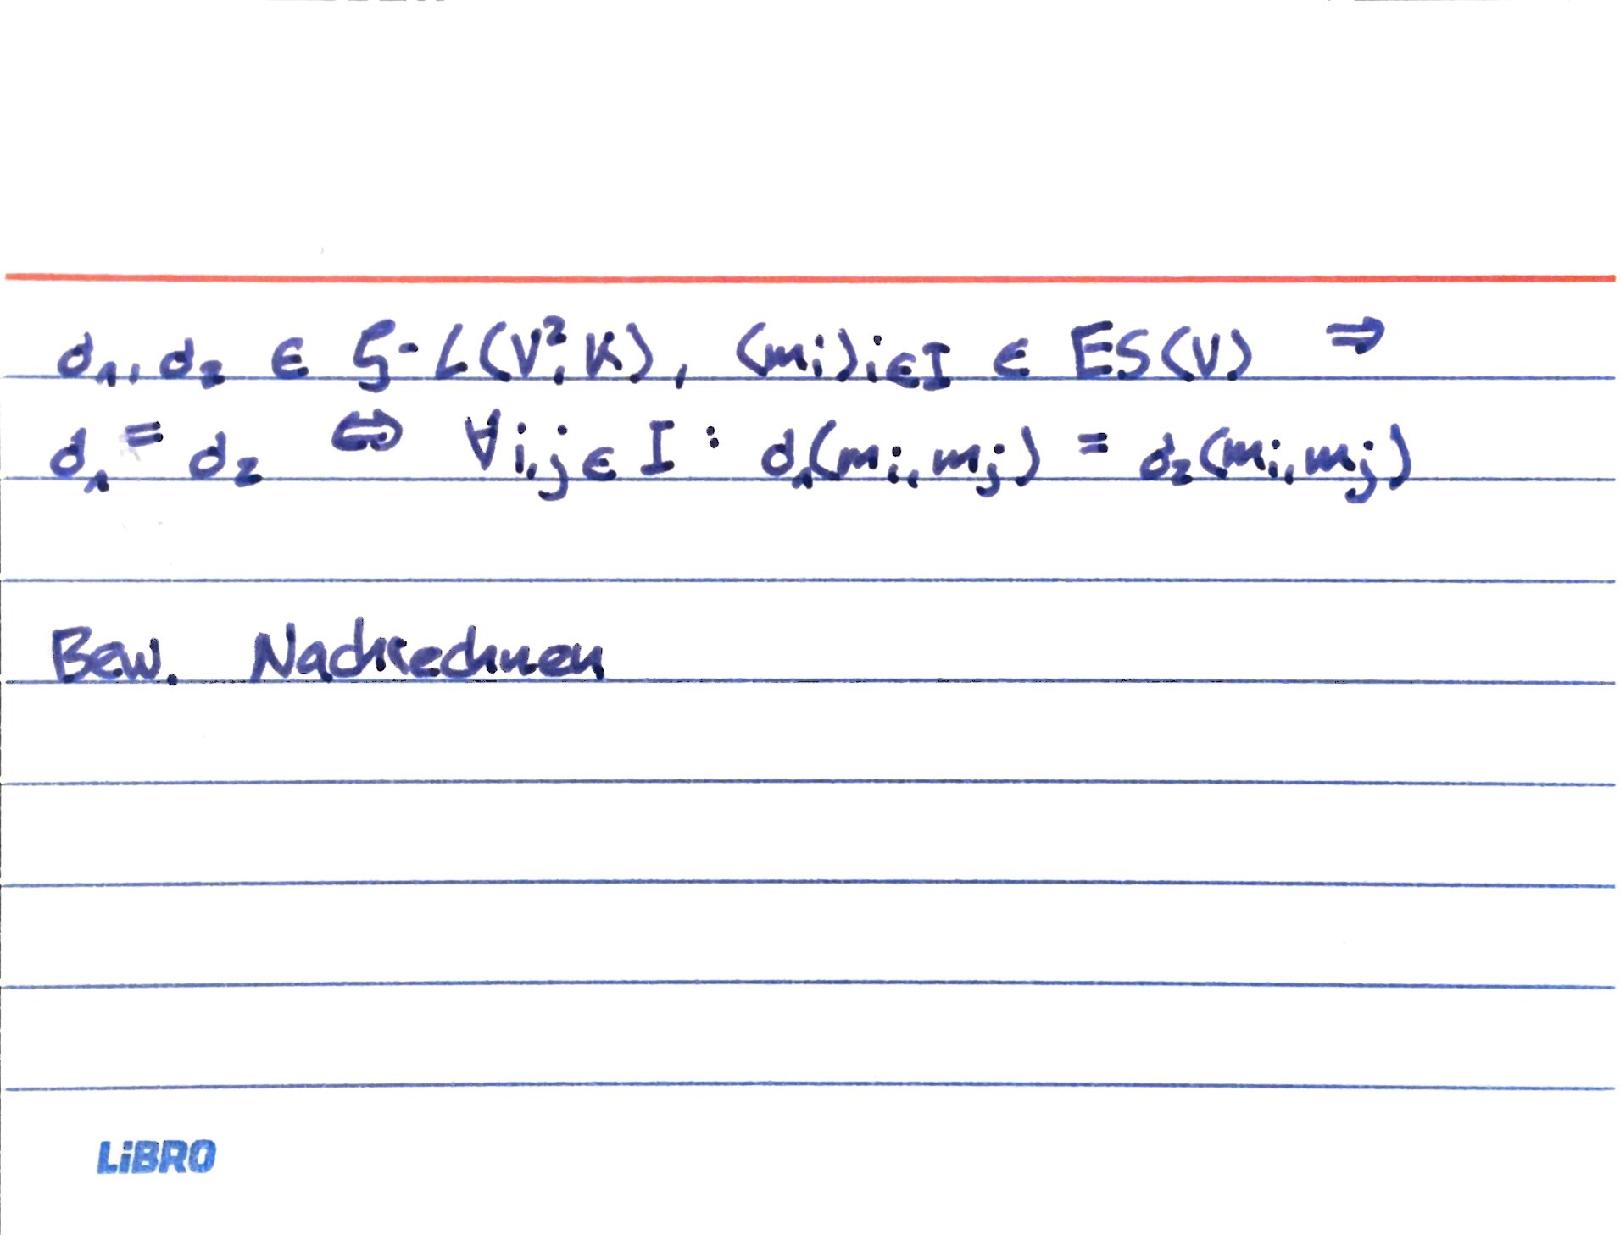 d₁, d₂ ∈ ζ-L(V²,K), (mᵢ)ᵢ∈I ∈ ES(V) ⇒
d₁ = d₂ ⇔ ∀i,j ∈ I : d₁(mᵢ, mⱼ) = d₂(mᵢ, mⱼ)
Bew. Nachrechnen
LiBRO